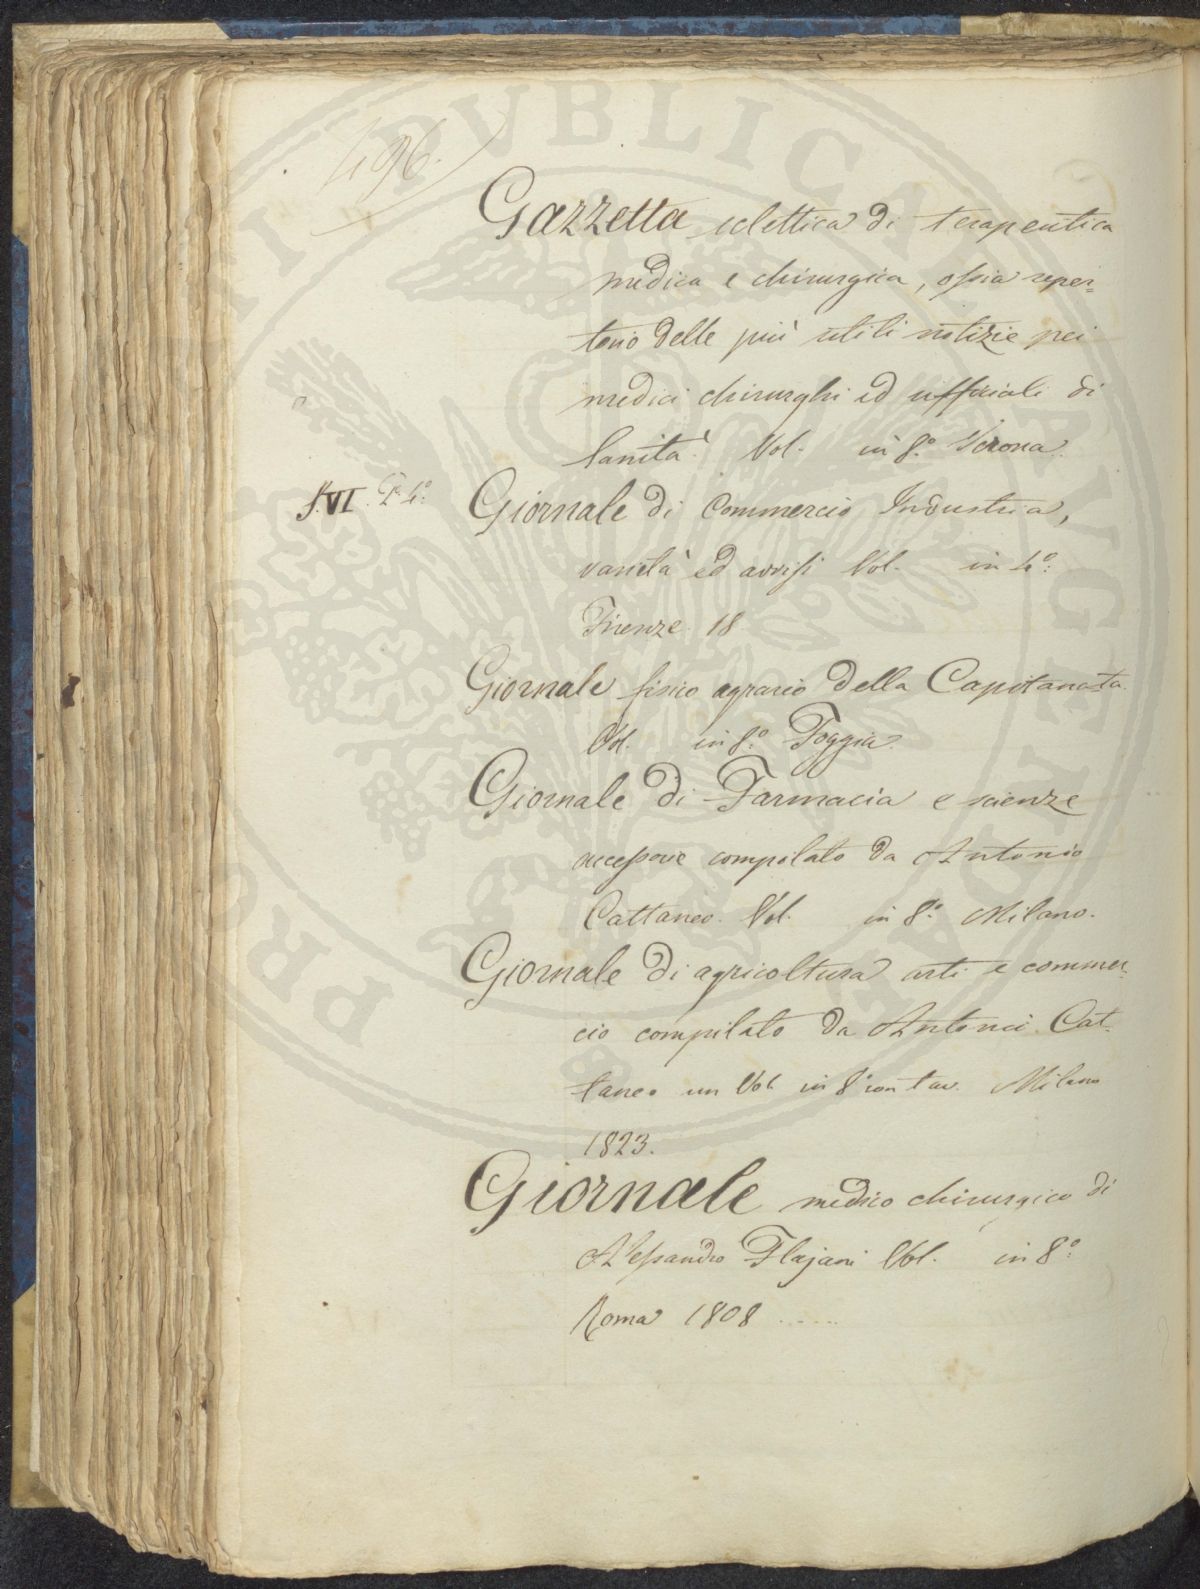 496.
Gazzetta eclettica di terapeutica
medica e chirurgica, ossia reper=
torio delle più utili notizie pei
medici chirurghi ed ufficiali di
sanità. Vol. in 8.º Verona.
S.VI. P. 4.º Giornale di Commercio Industria,
varietà ed avvisi Vol. in 4.º
Firenze 18
Giornale fisico agrario della Capitanata.
Vol. in 8.º Foggia.
Giornale di Farmacia e scienze
accessorie compilato da Antonio
Cattaneo. Vol. in 8.º Milano.
Giornale di agricoltura arti e commer=
cio compilato da Antonio Cat=
taneo un Vol. in 8º con tav. Milano
1823.
Giornale medico chirurgico di
Alessandro Flajani Vol. in 8.º
Roma 1808 ......